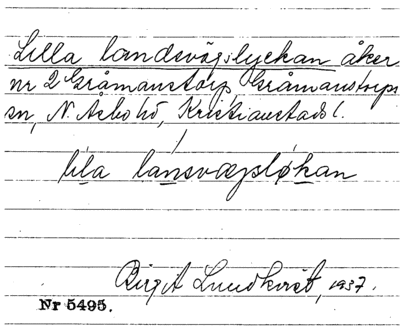 Lilla landsvägslyckan åker
nr 2 Gråmanstorp, Gråmanstorps
sn, N. Asbo hd, Kristianstads l.
lila lansvægsløkan
Birgit Lundkvist, 1937.
Nr 5495.